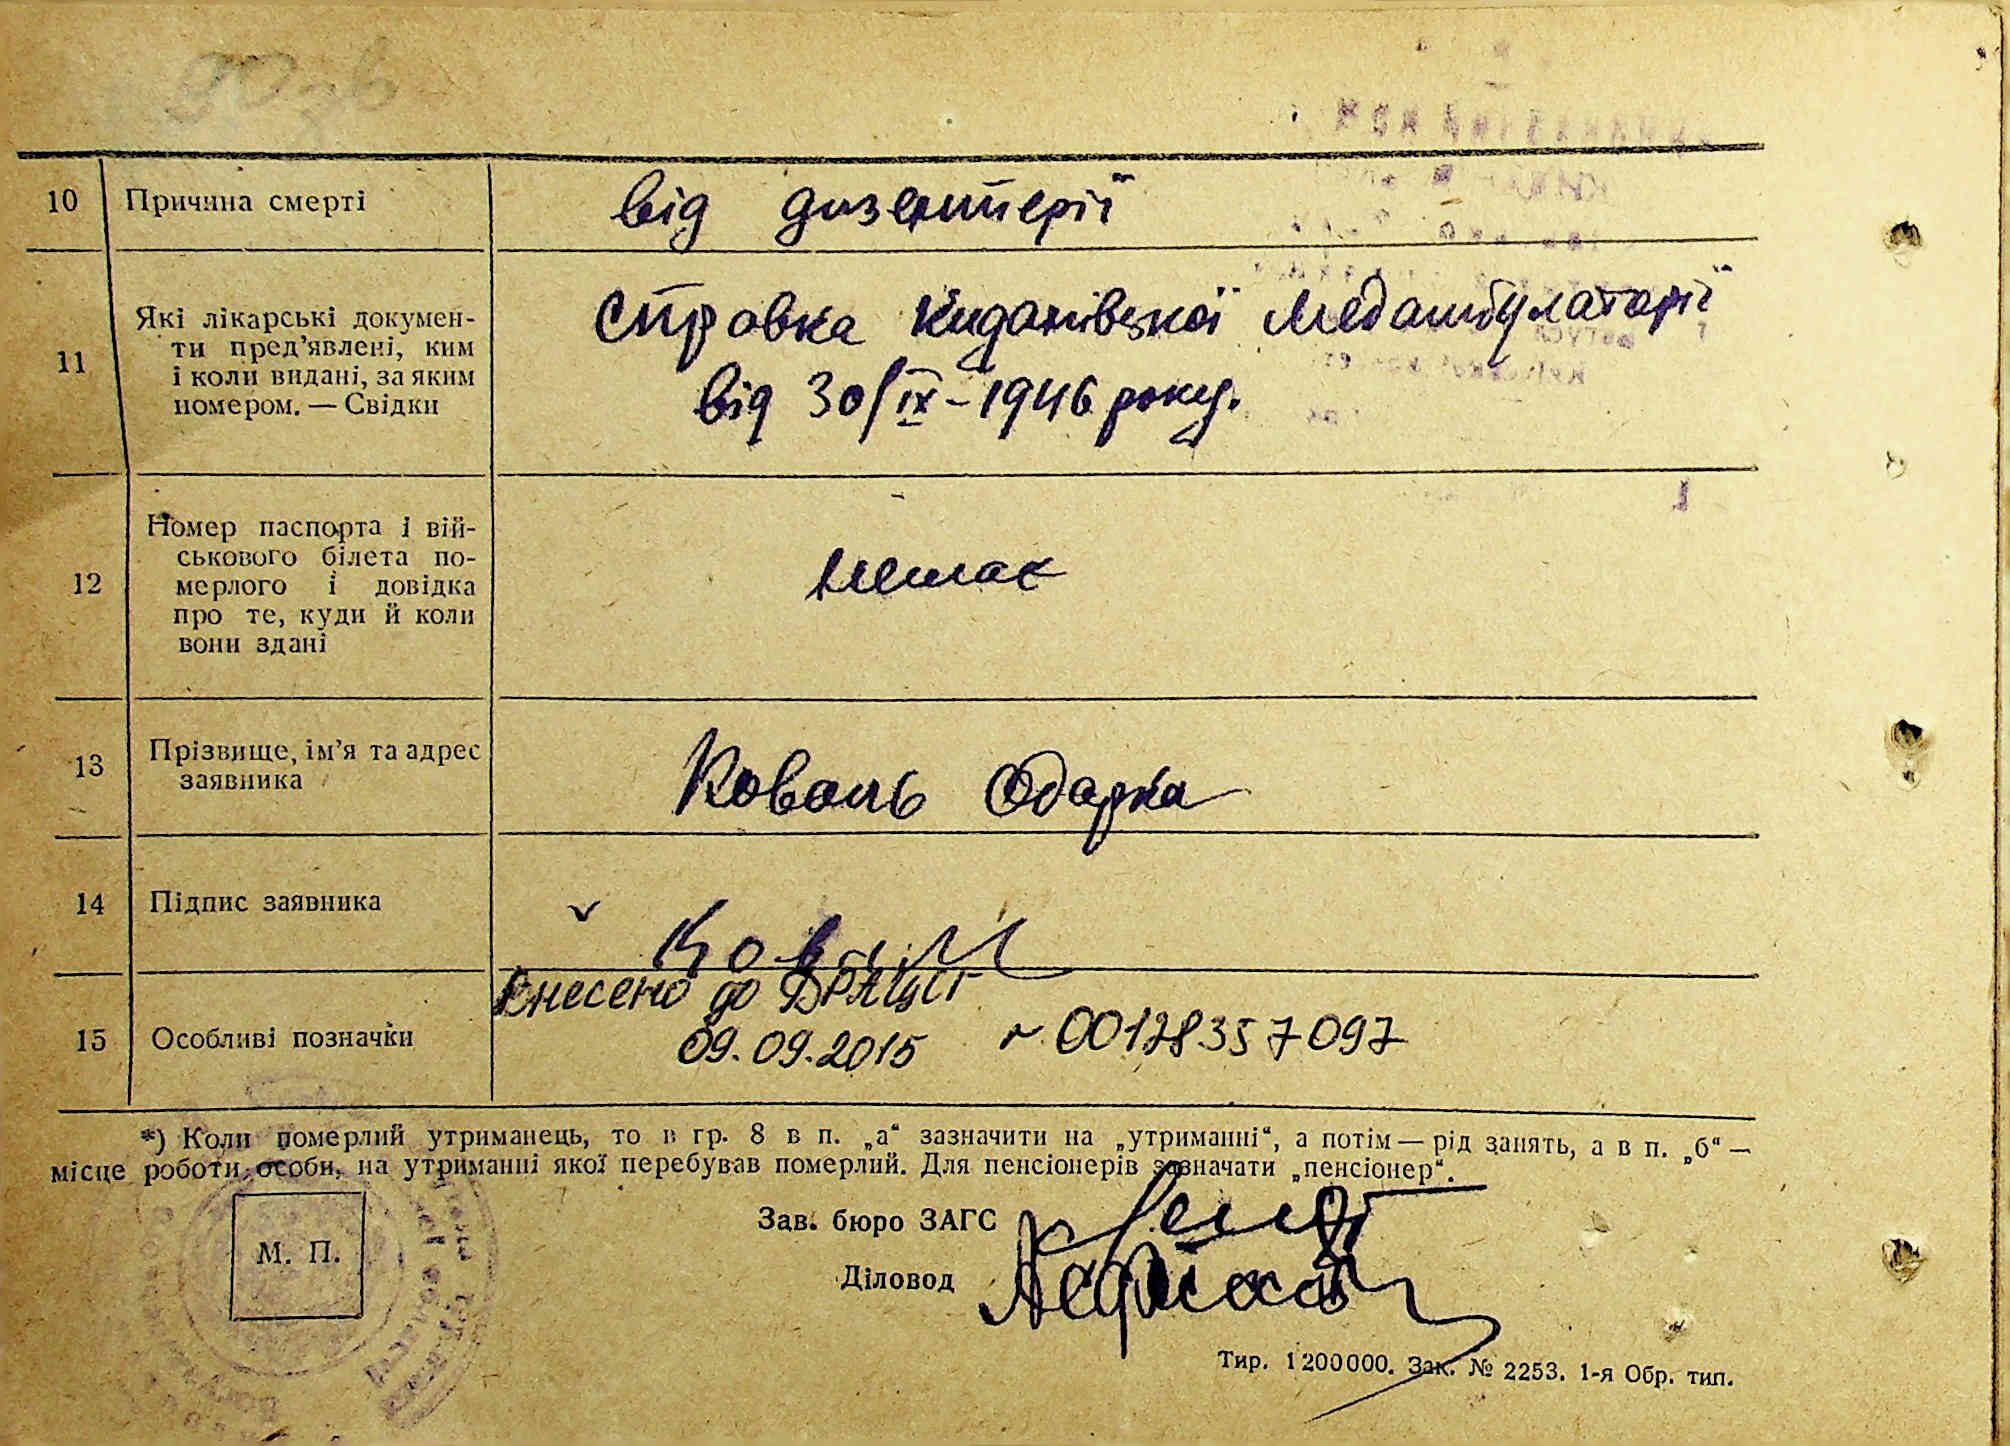 10 Причина смерті від дизентерії
11 Які лікарські докумен-
ти пред’явлені, ким
і коли видані, за яким
номером. — Свідки
Справка Кидановецкої Медамбулаторії
від 30/IX - 1946 року.
12 Номер паспорта і вій-
ськового білета по-
мерлого і довідка
про те, куди й коли
вони здані
немає
13 Прізвище, ім’я та адрес
заявника
Коваль Одарка
14 Підпис заявника
Коваль
15 Особливі позначки
Внесено до ДРАЦСГ
09.09.2015 № 00128357097
*) Коли померлий утриманець, то в гр. 8 в п. „а“ зазначити на „утриманні“, а потім — рід занять, а в п. „б“ —
місце роботи особи, на утриманні якої перебував померлий. Для пенсіонерів зазначати „пенсіонер“.
Зав. бюро ЗАГС
М. П.
Діловод
Тир. 1200000. Зак. № 2253. 1-я Обр. тип.